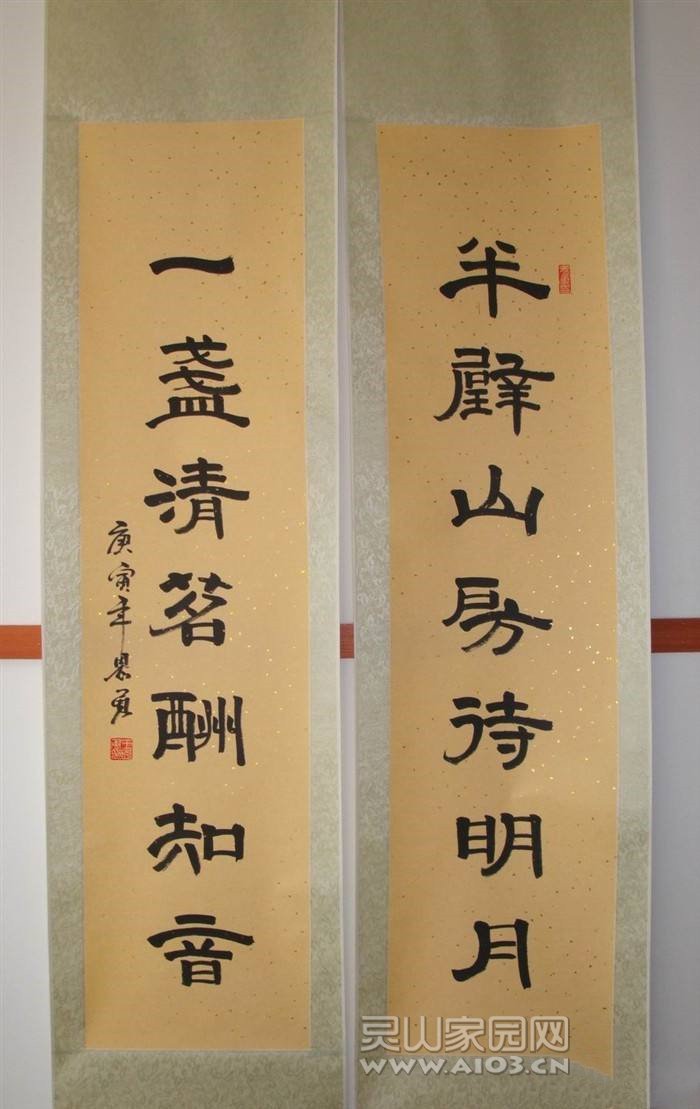 半壁山房待明月
一盏清茗酬知音
庚寅年
灵山家园网
WWW.A103.CN